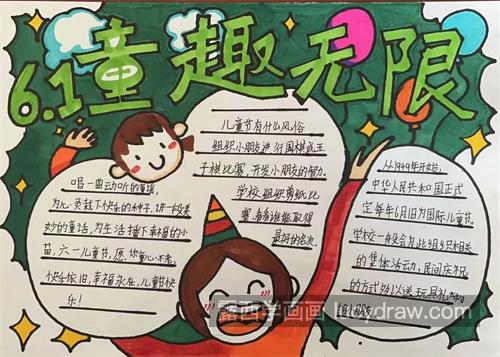 6.1童趣无限
唱一曲动听的童谣,
为心灵栽下快乐的种子,讲一段美
妙的童话,为生活播下幸福的小
苗,六一儿童节,愿你童心不老,
快乐依旧,幸福永在,儿童节快
乐!
儿童节有什么风俗
组织小朋友进行围棋或王
子棋比赛,开发小朋友的智力。
学校组织剪纸比
赛,看看谁能取得
最好的名次
从1949年开始,
中华人民共和国正式
定每年6月1日为国际儿童节,
学校一般会为此组织相关
的集体活动,民间庆祝
的方式多以送玩具礼
露西学画画 lxxjydraw.com